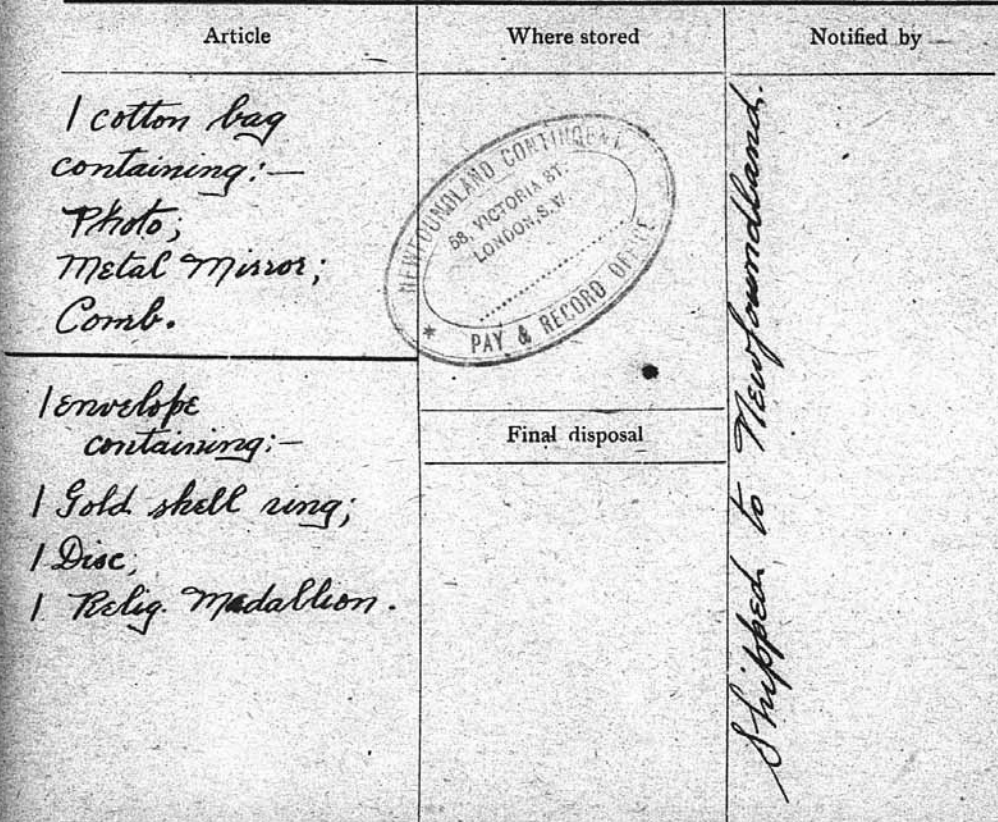 Article
Where stored
Notified by
1 cotton bag
containing:—
Photo;
Metal Mirror;
Comb.
1 envelope
containing:—
1 Gold shell ring;
1 Disc;
1 Relig. Medallion.
NEWFOUNDLAND CONTINGENT
58, VICTORIA ST.
LONDON, S.W.
* PAY & RECORD OFFICE
Final disposal
Shipped to Newfoundland.